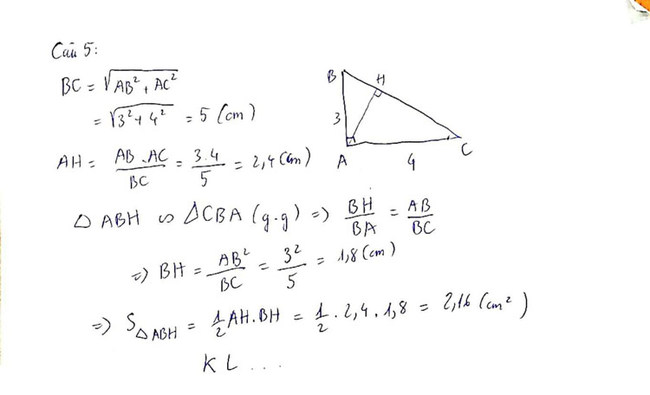 Câu 5:
BC = √(AB² + AC²)
= √(3² + 4²) = 5 (cm)
AH = AB . AC / BC = 3.4 / 5 = 2,4 (cm)
B H
3
A 4 C
△ ABH ∽ △CBA (g.g) => BH / BA = AB / BC
=> BH = AB² / BC = 3² / 5 = 1,8 (cm)
=> S△ABH = 1/2 AH.BH = 1/2 . 2,4 . 1,8 = 2,16 (cm²)
KL ...